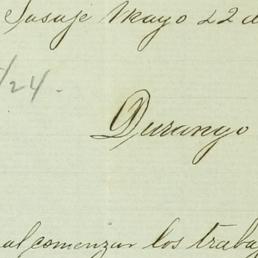 Mayo 22 d
/24.
Durango
al comenzar los traba